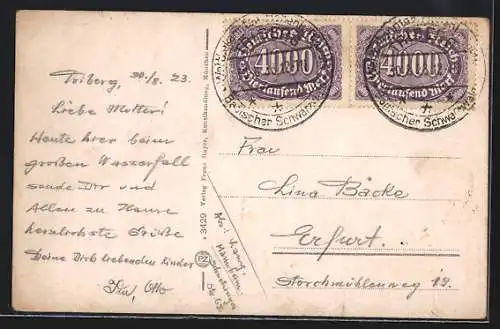 Triberg, 30/8. 23.
Liebe Mutter!
Heute hier beim
großen Wasserfall
sende Dir und
Allen zu Hause
herzlichste Grüße
Deine Dich liebenden Kinder
Otto
3429 Verlag Franz Hayer, Kunsthandlung, München
PZ
Deutsches Reich
4000
Viertausend Mark
Deutsches Reich
4000
Viertausend Mark
Badischer Schwarzwald
Badischer Schwarzwald
Frau
Lina Bäcke
Erfurt.
Storchmühlenweg 12.
Mannheim